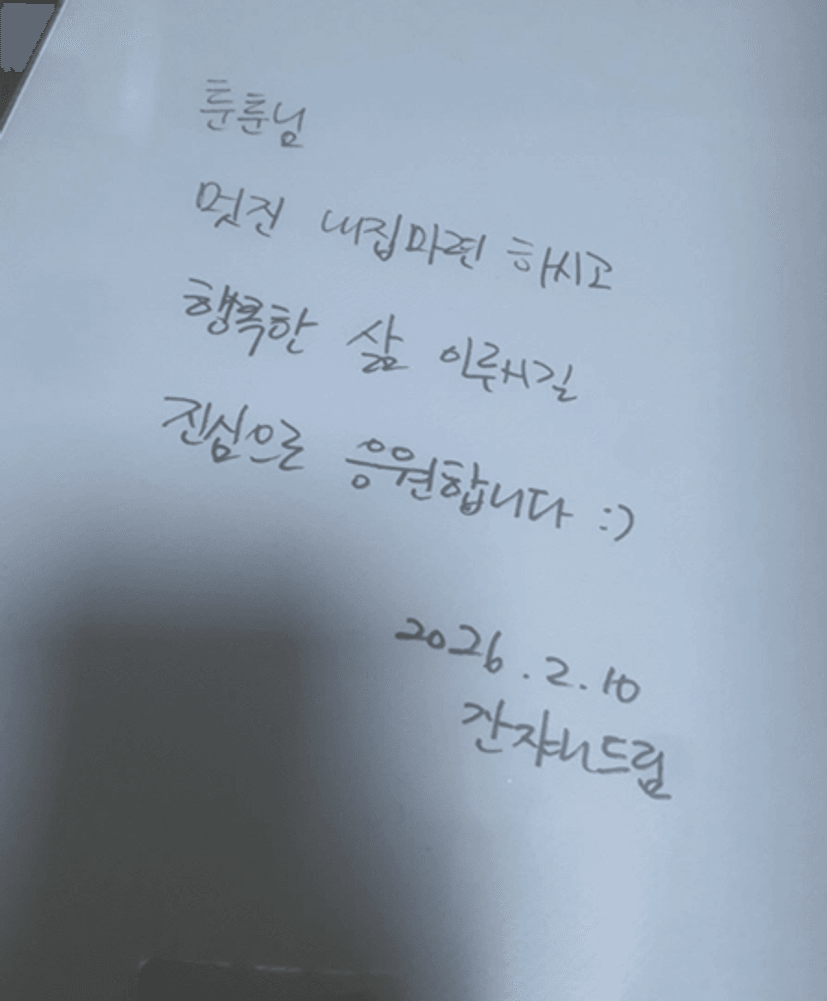 룬룬님
멋진 내집마련 하시고
행복한 삶 이루시길
진심으로 응원합니다 :)
2026.2.10
잔쟈니드림